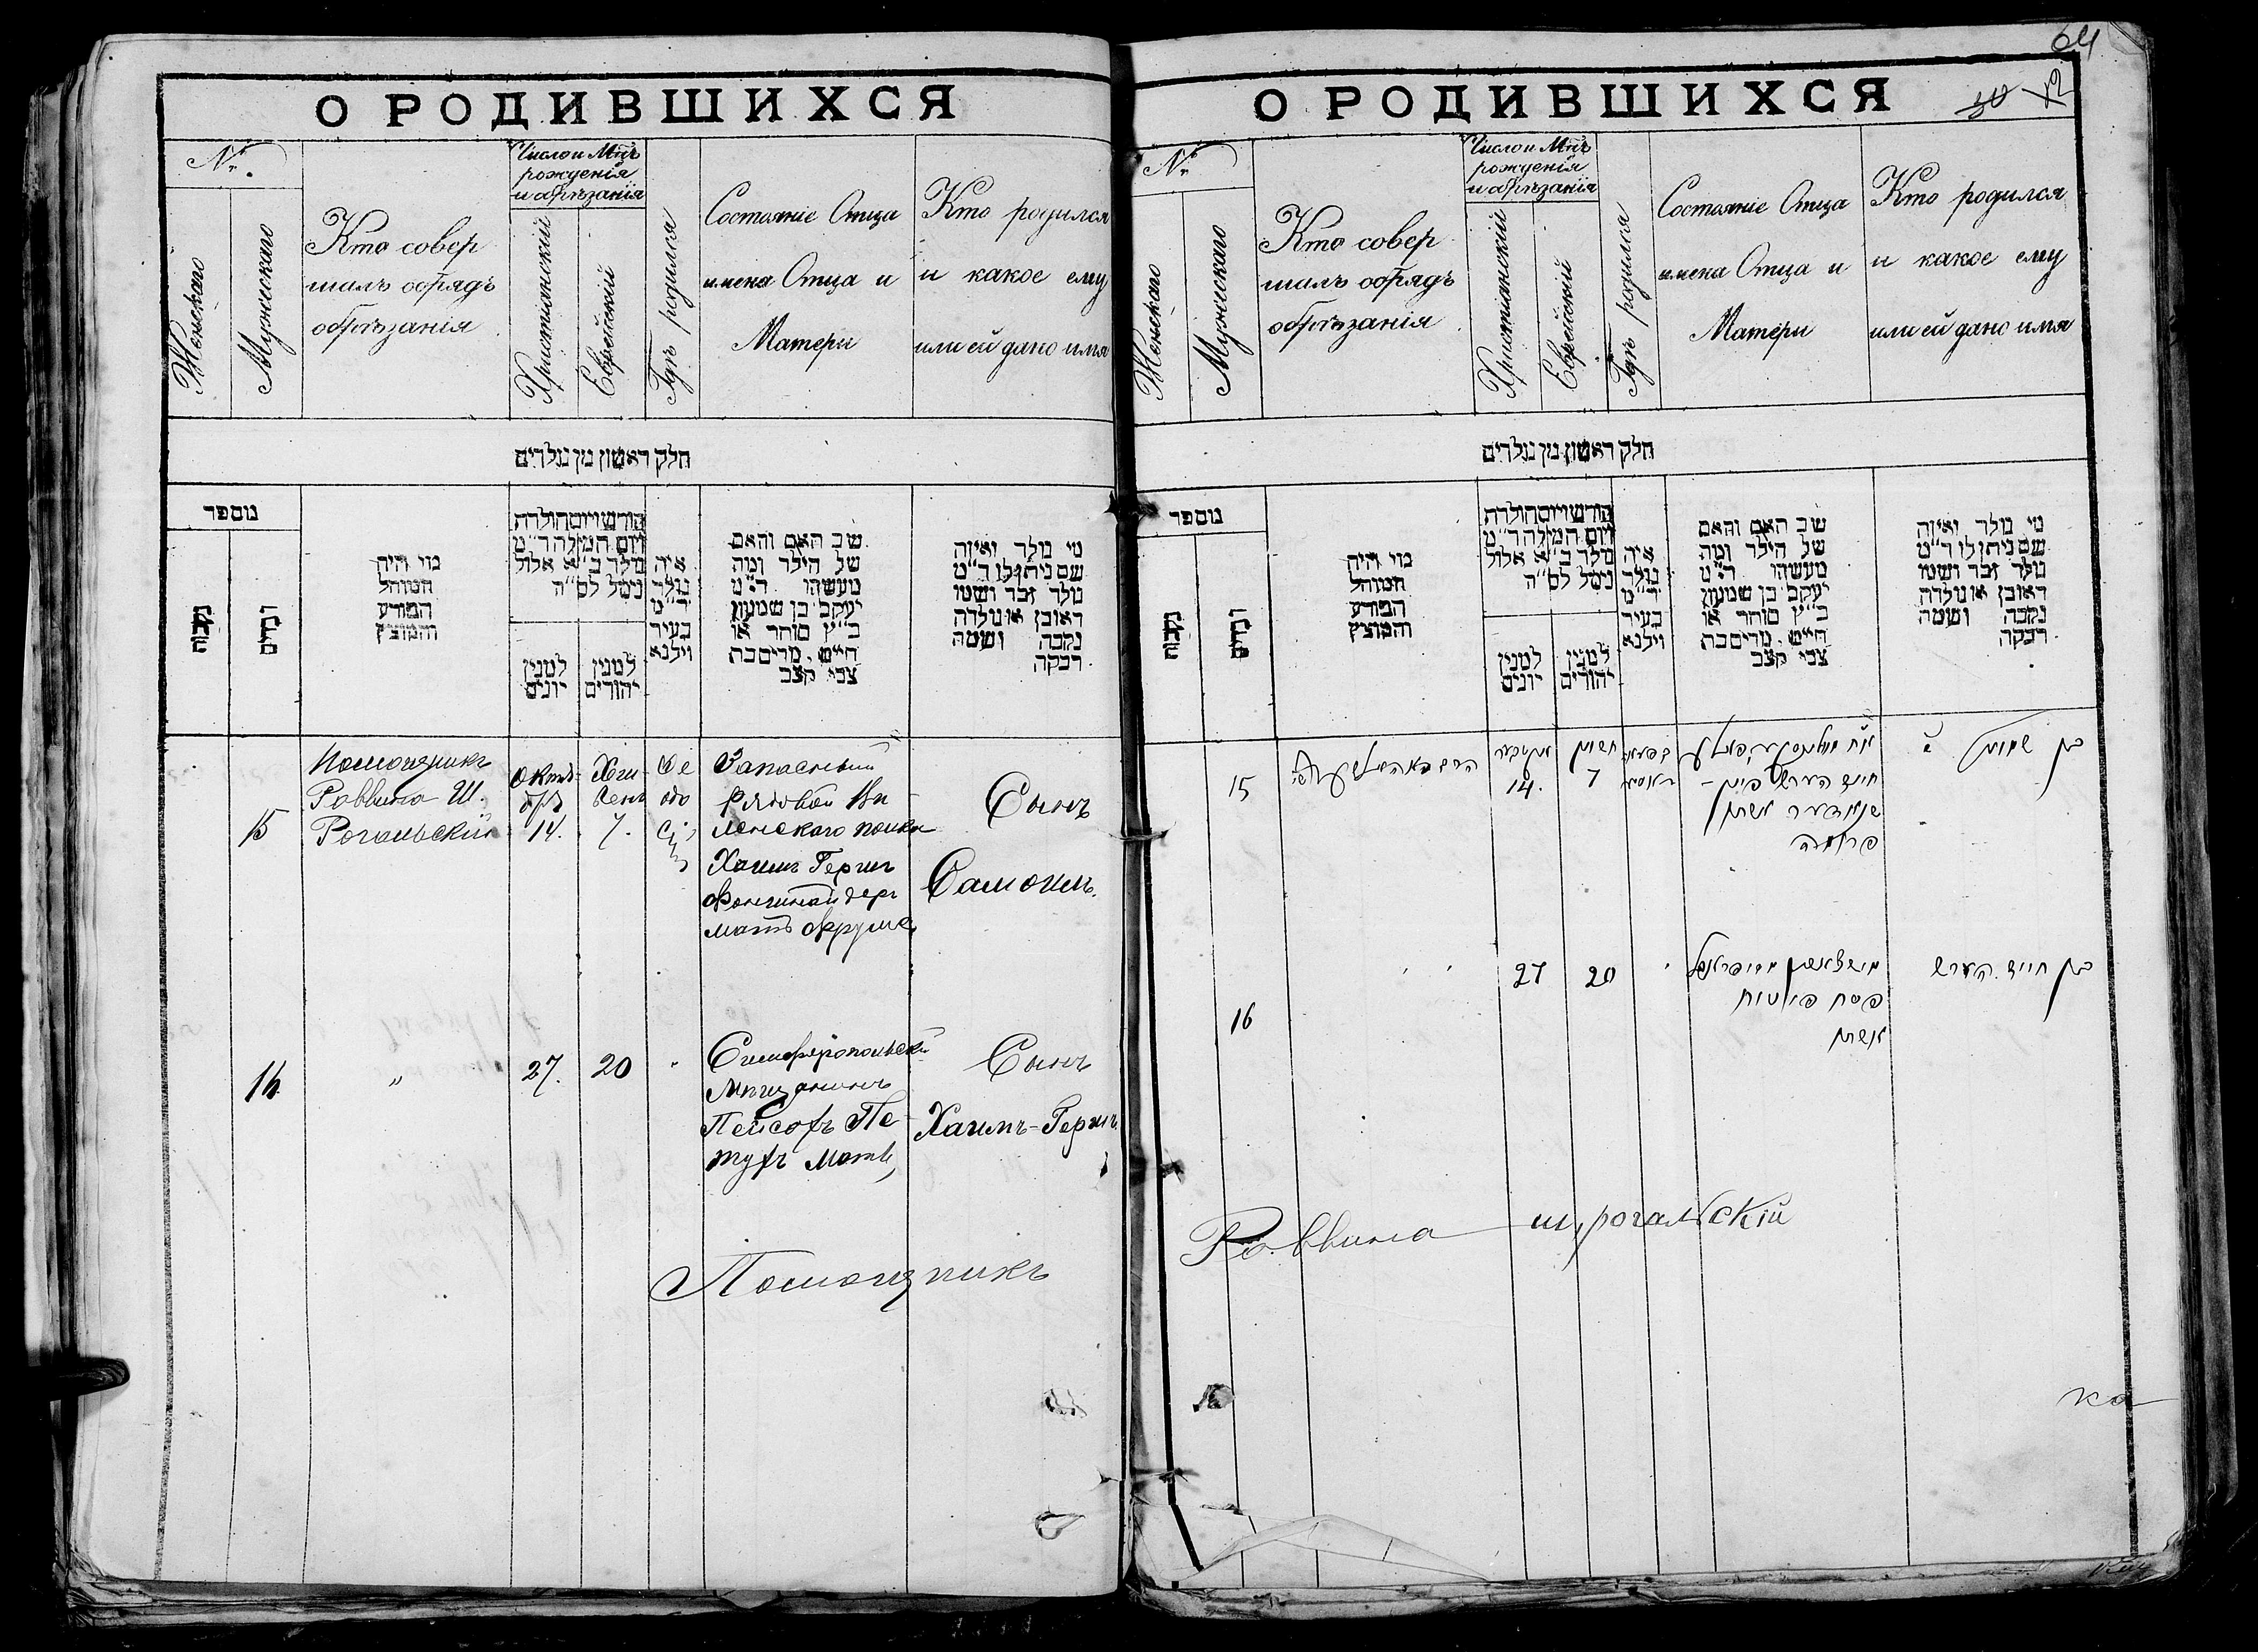 О РОДИВШИХСЯ
№.
Женскаго
Мужескаго
Кто совер
шалъ обрядъ
обрѣзанія
Число и Мцъ
рожденія
и обрѣзанія
Христіанскій
Еврейскій
Гдѣ родился
Состояніе Отца
имена Отца и
Матери
Кто родился
и какое ему
или ей дано имя
חלק ראשון מן נולדים
מספר
נקבות
זכרים
מי היה
המוהל
הפורע
והמוצץ
חודש ויום הולדת
ויום המילה ד״מ
נולד ב״א אלול
נימל לס״ה
למנין
יונים
למנין
יהודים
איה
נולד
ד״מ
בעיר
וילנא
שם האב והאם
של הילד ומה
מעשהו ד״מ
יעקב בן שמעון
כ״ץ סוחר או
חייט, מרים בת
צבי קצב
מי נולד ואיזה
שם ניתן לו ד״מ
נולד זכר ושמו
ראובן או נולדה
נקבה ושמה
רבקה
15
Помощникъ
Раввина Ш.
Рогальскій
Октя-
бря
14.
7.
Ѳе
одо
сія
Запасный
Рядовой
ленскаго полка
Хаимъ Герш
мать Фрума
Сынъ
Самоилъ.
16
"
27.
20
"
Симферопольскій
Мѣщанинъ
Пейсахъ Пе-
тухъ Мать,
Сынъ
Хаимъ-Гершъ
Помощникъ
64
О РОДИВШИХСЯ
30 12
№
Женскаго
Мужескаго
Кто совер
шалъ обрядъ
обрѣзанія
Число и Мцъ
рожденія
и обрѣзанія
Христіанскій
Еврейскій
Гдѣ родился
Состояніе Отца
имена Отца и
Матери
Кто родился
и какое ему
или ей дано имя
חלק ראשון מן נולדים
מספר
נקבות
זכרים
מי היה
המוהל
הפורע
והמוצץ
חודש ויום הולדת
ויום המילה ד״מ
נולד ב״א אלול
נימל לס״ה
למנין
יונים
למנין
יהודים
איה
נולד
ד״מ
בעיר
וילנא
שם האב והאם
של הילד ומה
מעשהו ד״מ
יעקב בן שמעון
כ״ץ סוחר או
חייט, מרים בת
צבי קצב
מי נולד ואיזה
שם ניתן לו ד״מ
נולד זכר ושמו
ראובן או נולדה
נקבה ושמה
רבקה
15
אקטבער
14.
חשון
7
חיים הערש
אשתו
פרומה
בן שמואל
16
27
20
פסח פיטוח
אשתו
בן חיים הערש
Раввина Ш, Рогальскій
ка